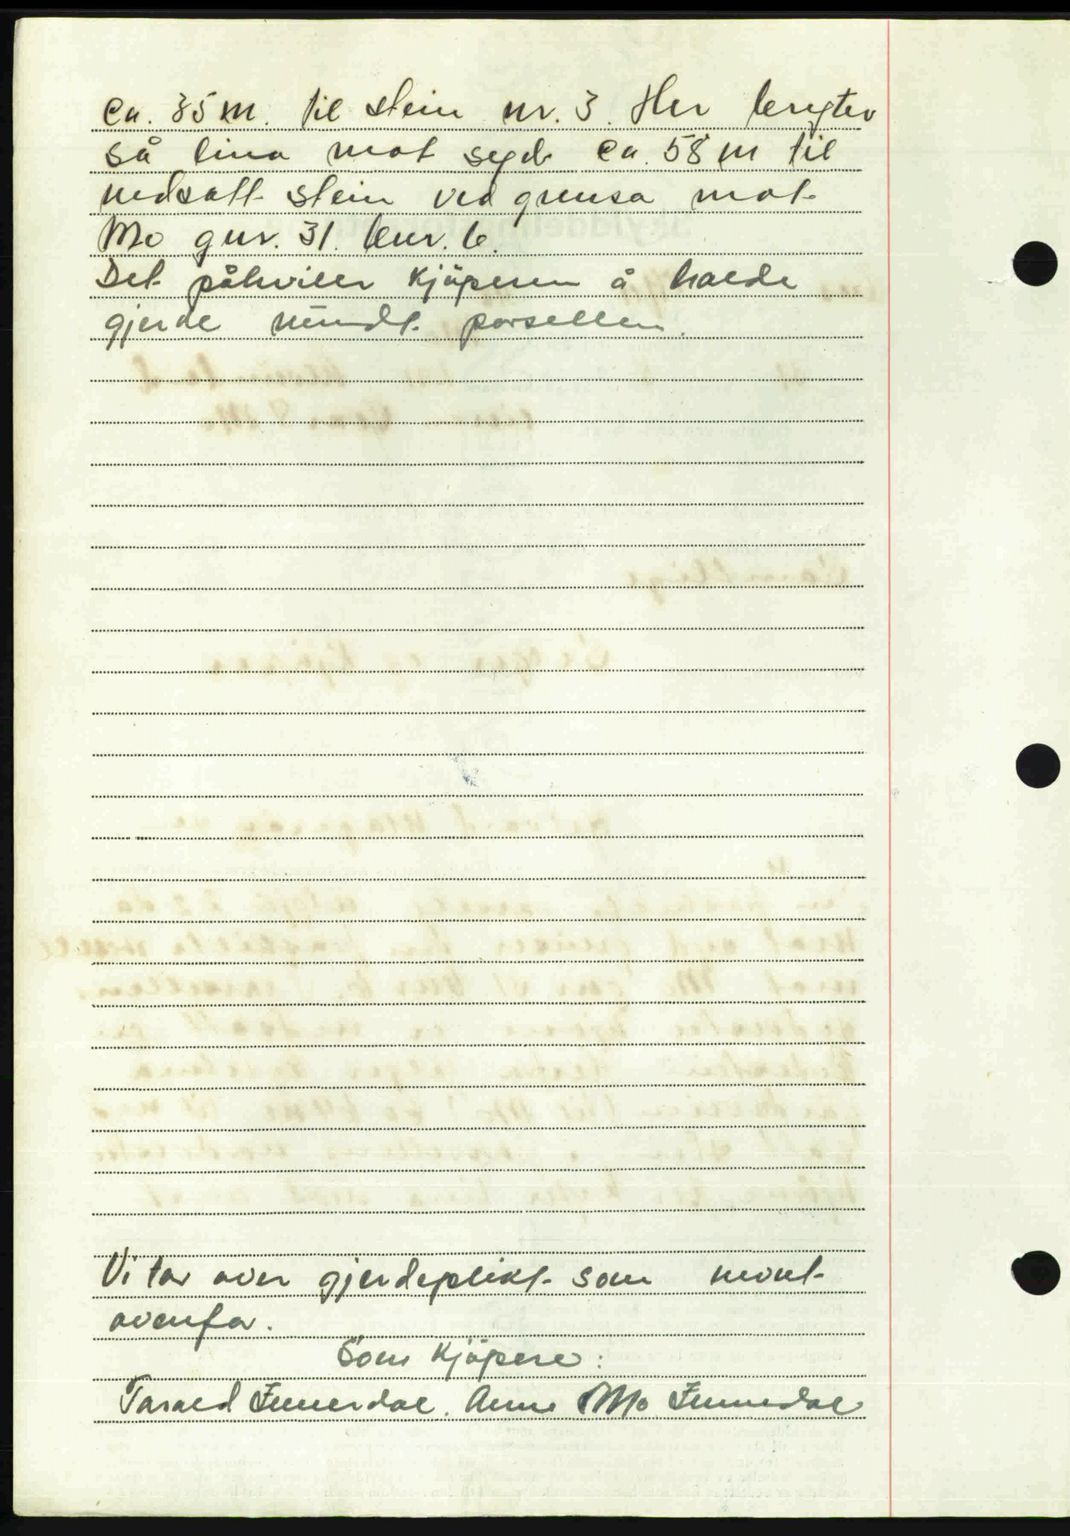 Ca. 35 m. til stein nr. 3. Her bryter
så lina mot syd ca. 58 m til
nedsatt stein ved grensa mot
Mo gnr. 31. bnr. 6.
Det påhviler kjöperen å holde
gjerde rundt parsellen.
Vi tar over gjerdeplikt som nevnt
ovenfor.
Som kjöpere:
Tarald Innerdal. Anne Mo Innerdal